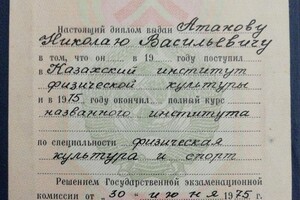 Настоящий диплом выдан Атанову
Николаю Васильевичу
в том, что он ... в 19 году поступил
в Казахский институт
физической культуры
и в 1975 году окончил полный курс
названного института
по специальности физическая
культура и спорт
Решением Государственной экзаменационной
комиссии от "30" июня 1975 г.